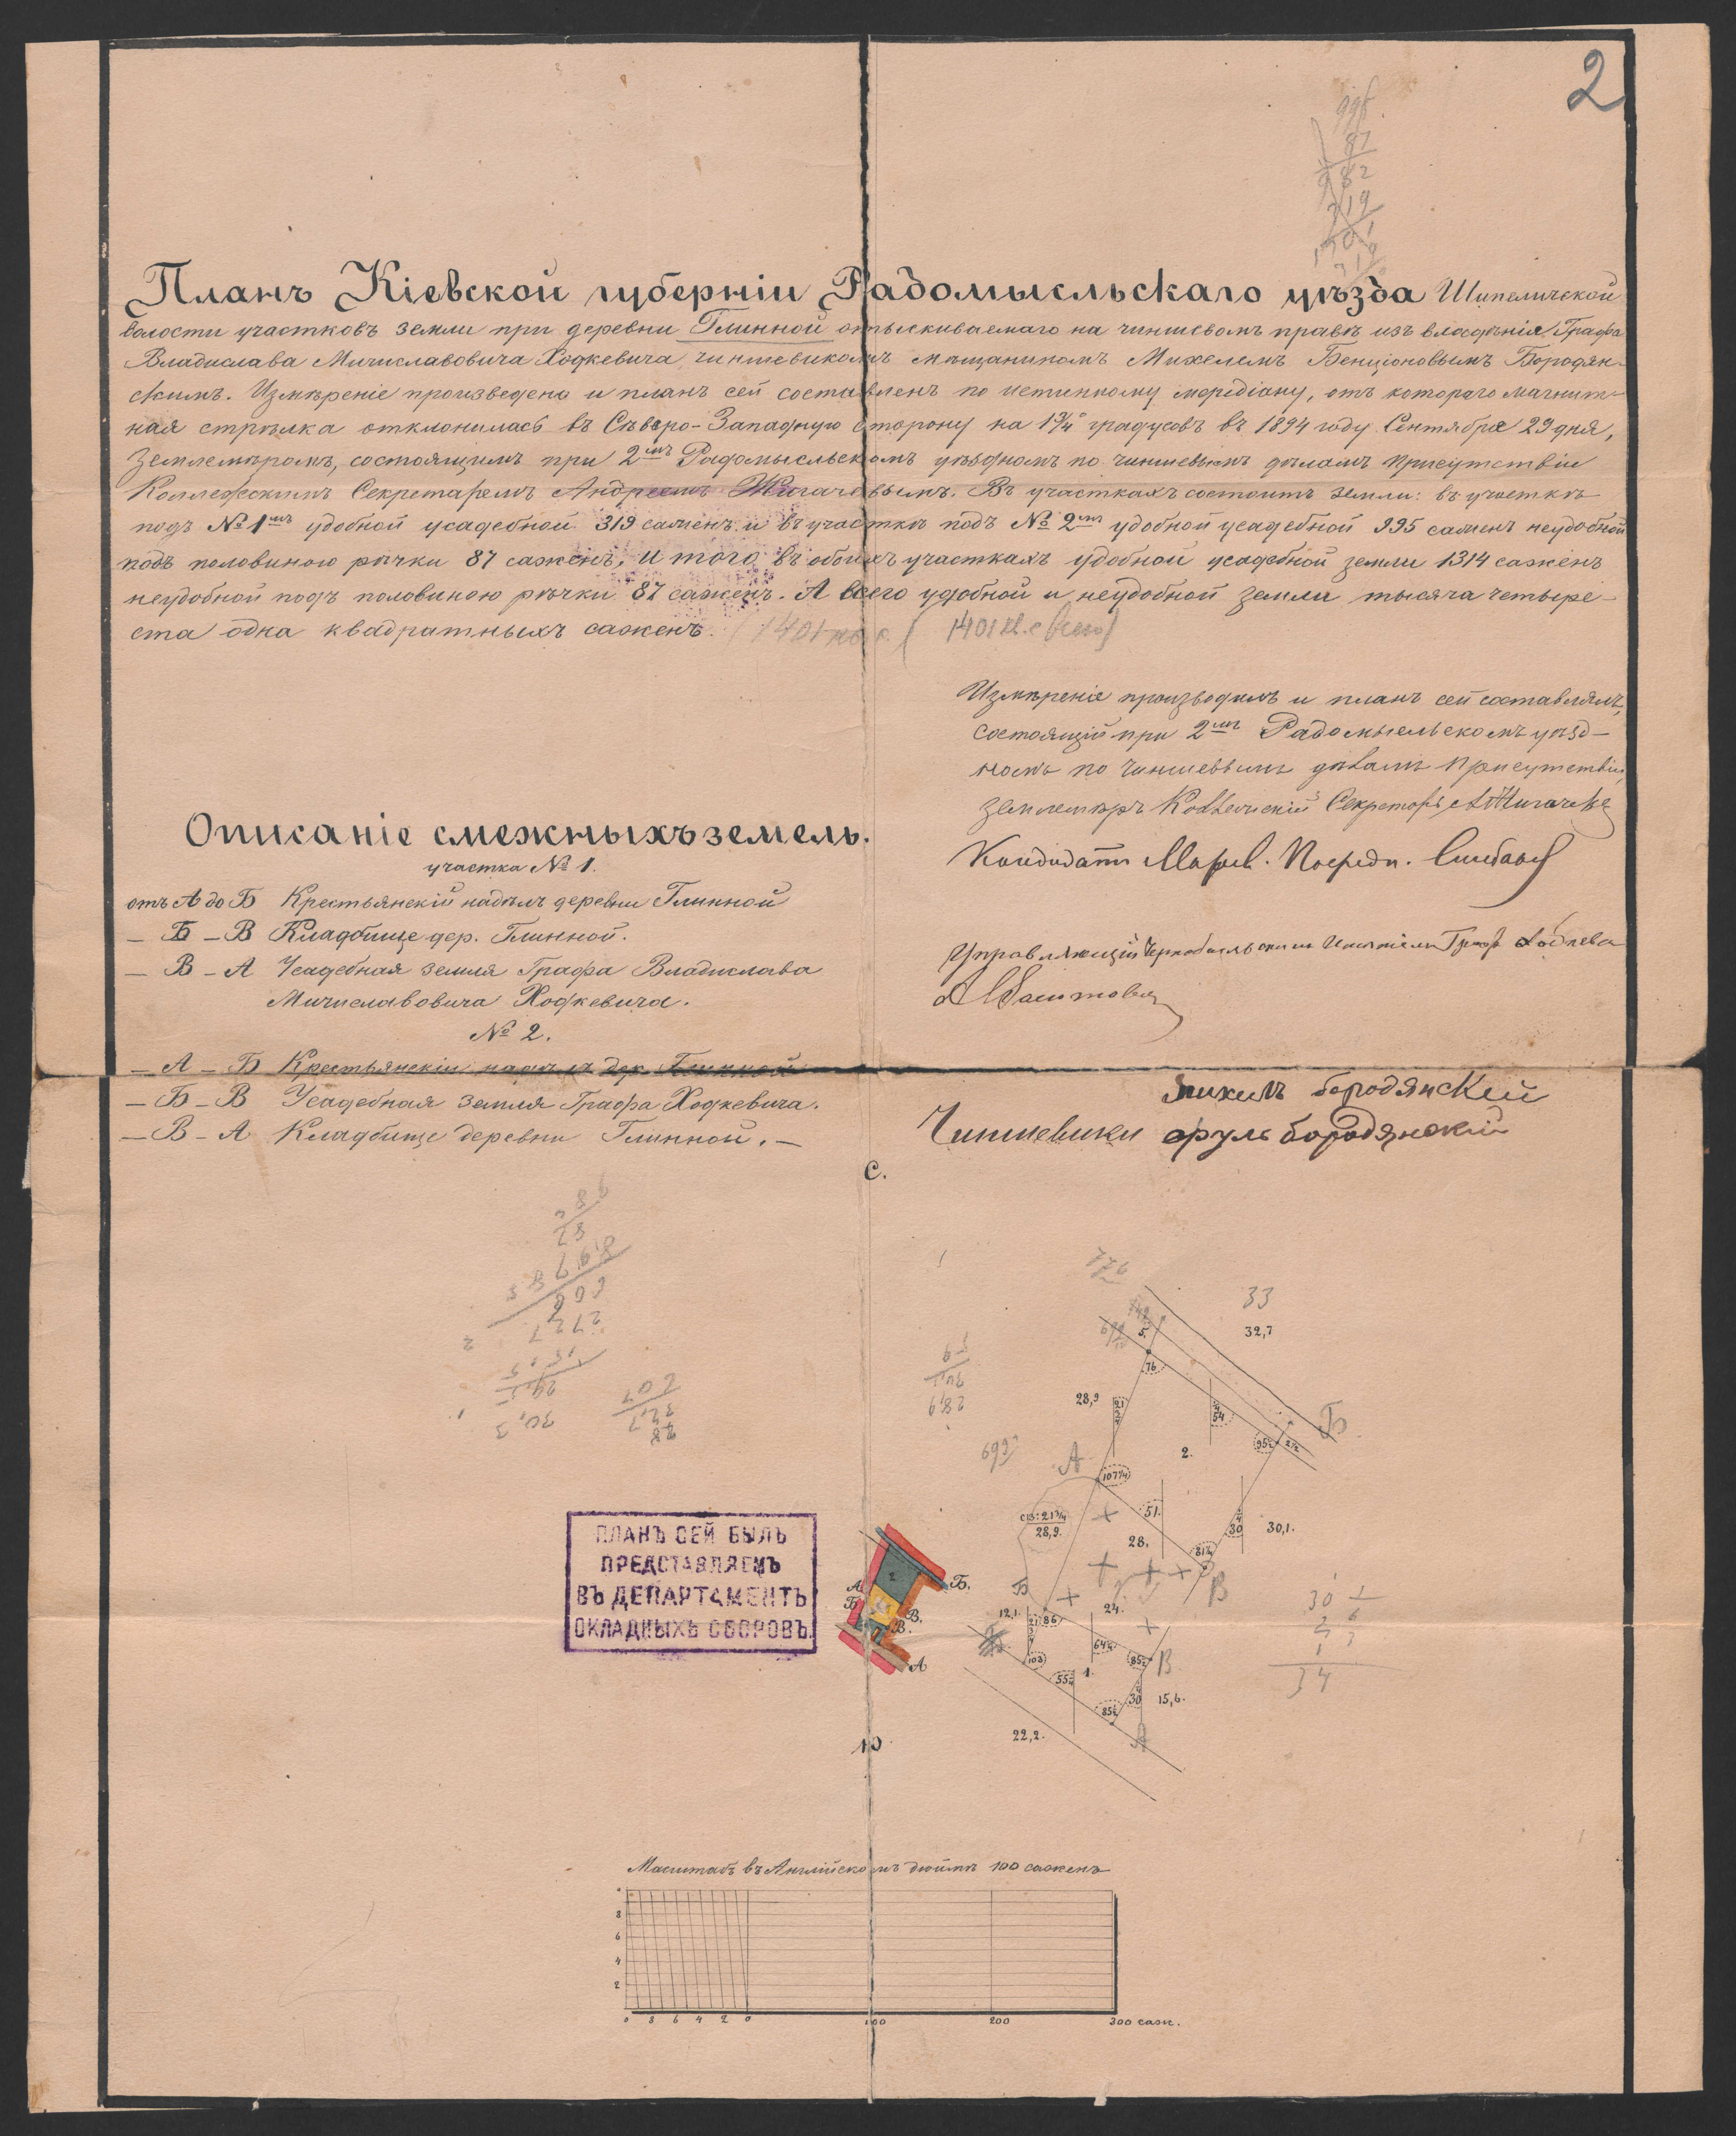 2
Планъ Кіевской губерніи Радомысльскаго уѣзда Шипеличской
волости участковъ земли при деревни Глинной отыскиваемаго на чиншевомъ правѣ изъ владѣнія Графа
Владислава Мичиславовича Ходкевича, чиншевикомъ мѣщаниномъ Михелемъ Бенціоновымъ Бородян-
скимъ. Измѣреніе произведено и планъ сей составленъ по истинному меридіану, отъ котораго магнит-
ная стрѣлка отклонилась въ Сѣверо-Западную сторону на 1¾° градусовъ въ 1894 году Сентября 29 дня,
Землемѣромъ, состоящимъ при 2мъ Радомысльскомъ уѣздномъ по чиншевымъ дѣламъ присутствіи
Коллежскимъ Секретаремъ Андреемъ Жигачевымъ. Въ участкахъ состоитъ земли: въ участкѣ
подъ №1мъ удобной усадебной 319 саженъ и въ участкѣ подъ №2мъ удобной усадебной 995 саженъ неудобной
подъ половиною рѣчки 87 саженъ, Итого въ обоихъ участкахъ удобной усадебной земли 1314 саженъ
неудобной подъ половиною рѣчки 87 саженъ. А всего удобной и неудобной земли тысяча четыре-
ста одна квадратныхъ саженъ. (1401 кв. с. ( 1401 кв. с всего)
Измѣреніе производилъ и планъ сей составлялъ,
состоящій при 2мъ Радомысльскомъ уѣзд-
номъ по чиншевымъ дѣламъ Присутствіи,
землемѣръ Коллежскій Секретарь А Жигачевъ
Кандидатъ Миров. Посредн.
Управляющій Чернобыльскимъ Имѣніемъ Графа Ходкевича
Описаніе смежныхъ земель.
участка № 1.
отъ А до Б Крестьянскій надѣлъ деревни Глинной
— Б — В Кладбище дер. Глинной.
— В — А Усадебная земля Графа Владислава
Мичиславовича Ходкевича.
№ 2.
— А — Б Крестьянскій надѣлъ дер. Глинной
— Б — В Усадебная земля Графа Ходкевича.
— В — А Кладбище деревни Глинной. —
михилъ бородянский
Чиншевики сруль бородянский
С.
33
32,7
5.
76
28,9
21¾
54
95½
2½
Б
2.
А
107¼
693
СВ:21¾
28,9.
51.
28.
30
30,1.
81¼
Б
В
24.
12,1.
21¾
86
64¼
103
55¼
1.
85½
В
30
15,6.
85½
22,2.
А
ПЛАНЪ СЕЙ БЫЛЪ
ПРЕДСТАВЛЯЕМЪ
ВЪ ДЕПАРТАМЕНТЪ
ОКЛАДНЫХЪ СБОРОВЪ.
2
А
Б
Б.
В.
В.
1
А
34
Ю
Масштабъ въ Англійскомъ дюймѣ 100 саженъ
8
6
4
2
0 8 6 4 2 0 100 200 300 саж.